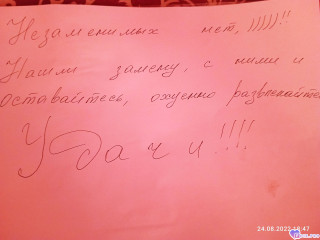 Незаменимых нет,)))))!!
Нашли замену, с ними и
оставайтесь, охуенно развлекайтесь
Удачи!!!!
24.08.2022 18:47